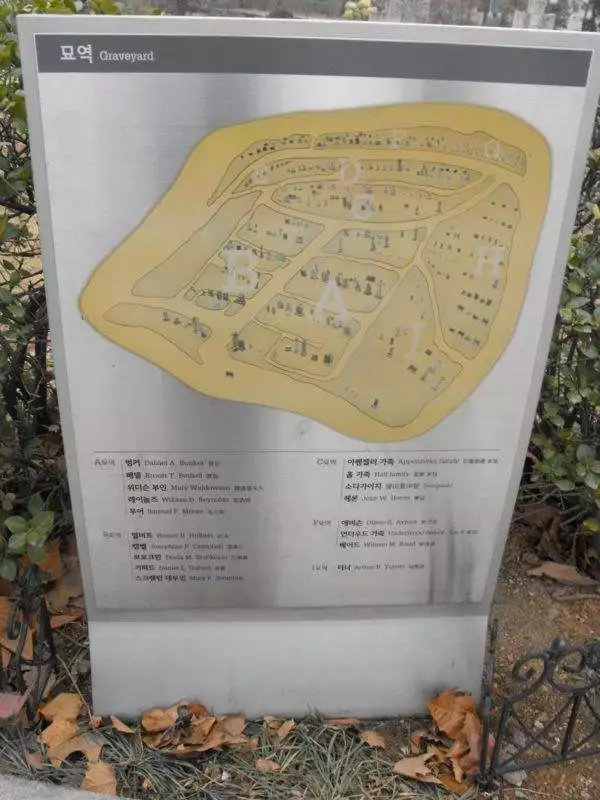 묘역 Graveyard
F
D
C
B
A
H
I
A묘역 벙커 Dalziel A. Bunker
베델 Ernest T. Bethell
위더슨 부인 Mary Widdowson
레이놀즈 William D. Reynolds
무어 Samuel F. Moore
B묘역 헐버트 Homer B. Hulbert
캠벨 Josephine P. Campbell
브로크만
기퍼드 Daniel L. Gifford
스크랜턴 대부인 Mary F. Scranton
C묘역 아펜젤러 가족 Appenzeller family
홀 가족 Hall family
소다가이치
헤론 John W. Heron
F묘역 에비슨 Oliver R. Avison
언더우드 가족 Underwood family
베어드 William M. Baird
I묘역 터너 Arthur B. Turner